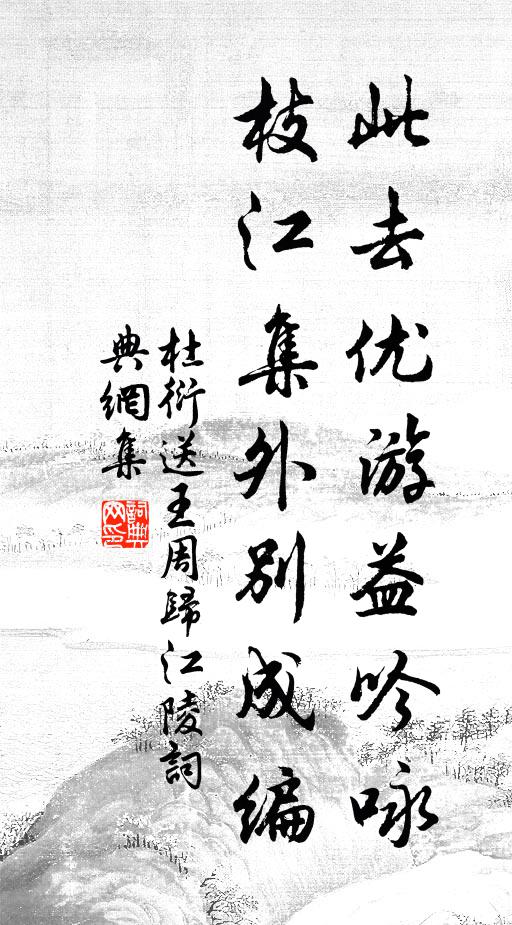 此去优游益吟咏
枝江集外别成编
杜衍送王周歸江陵詞
典網集
詞典網印